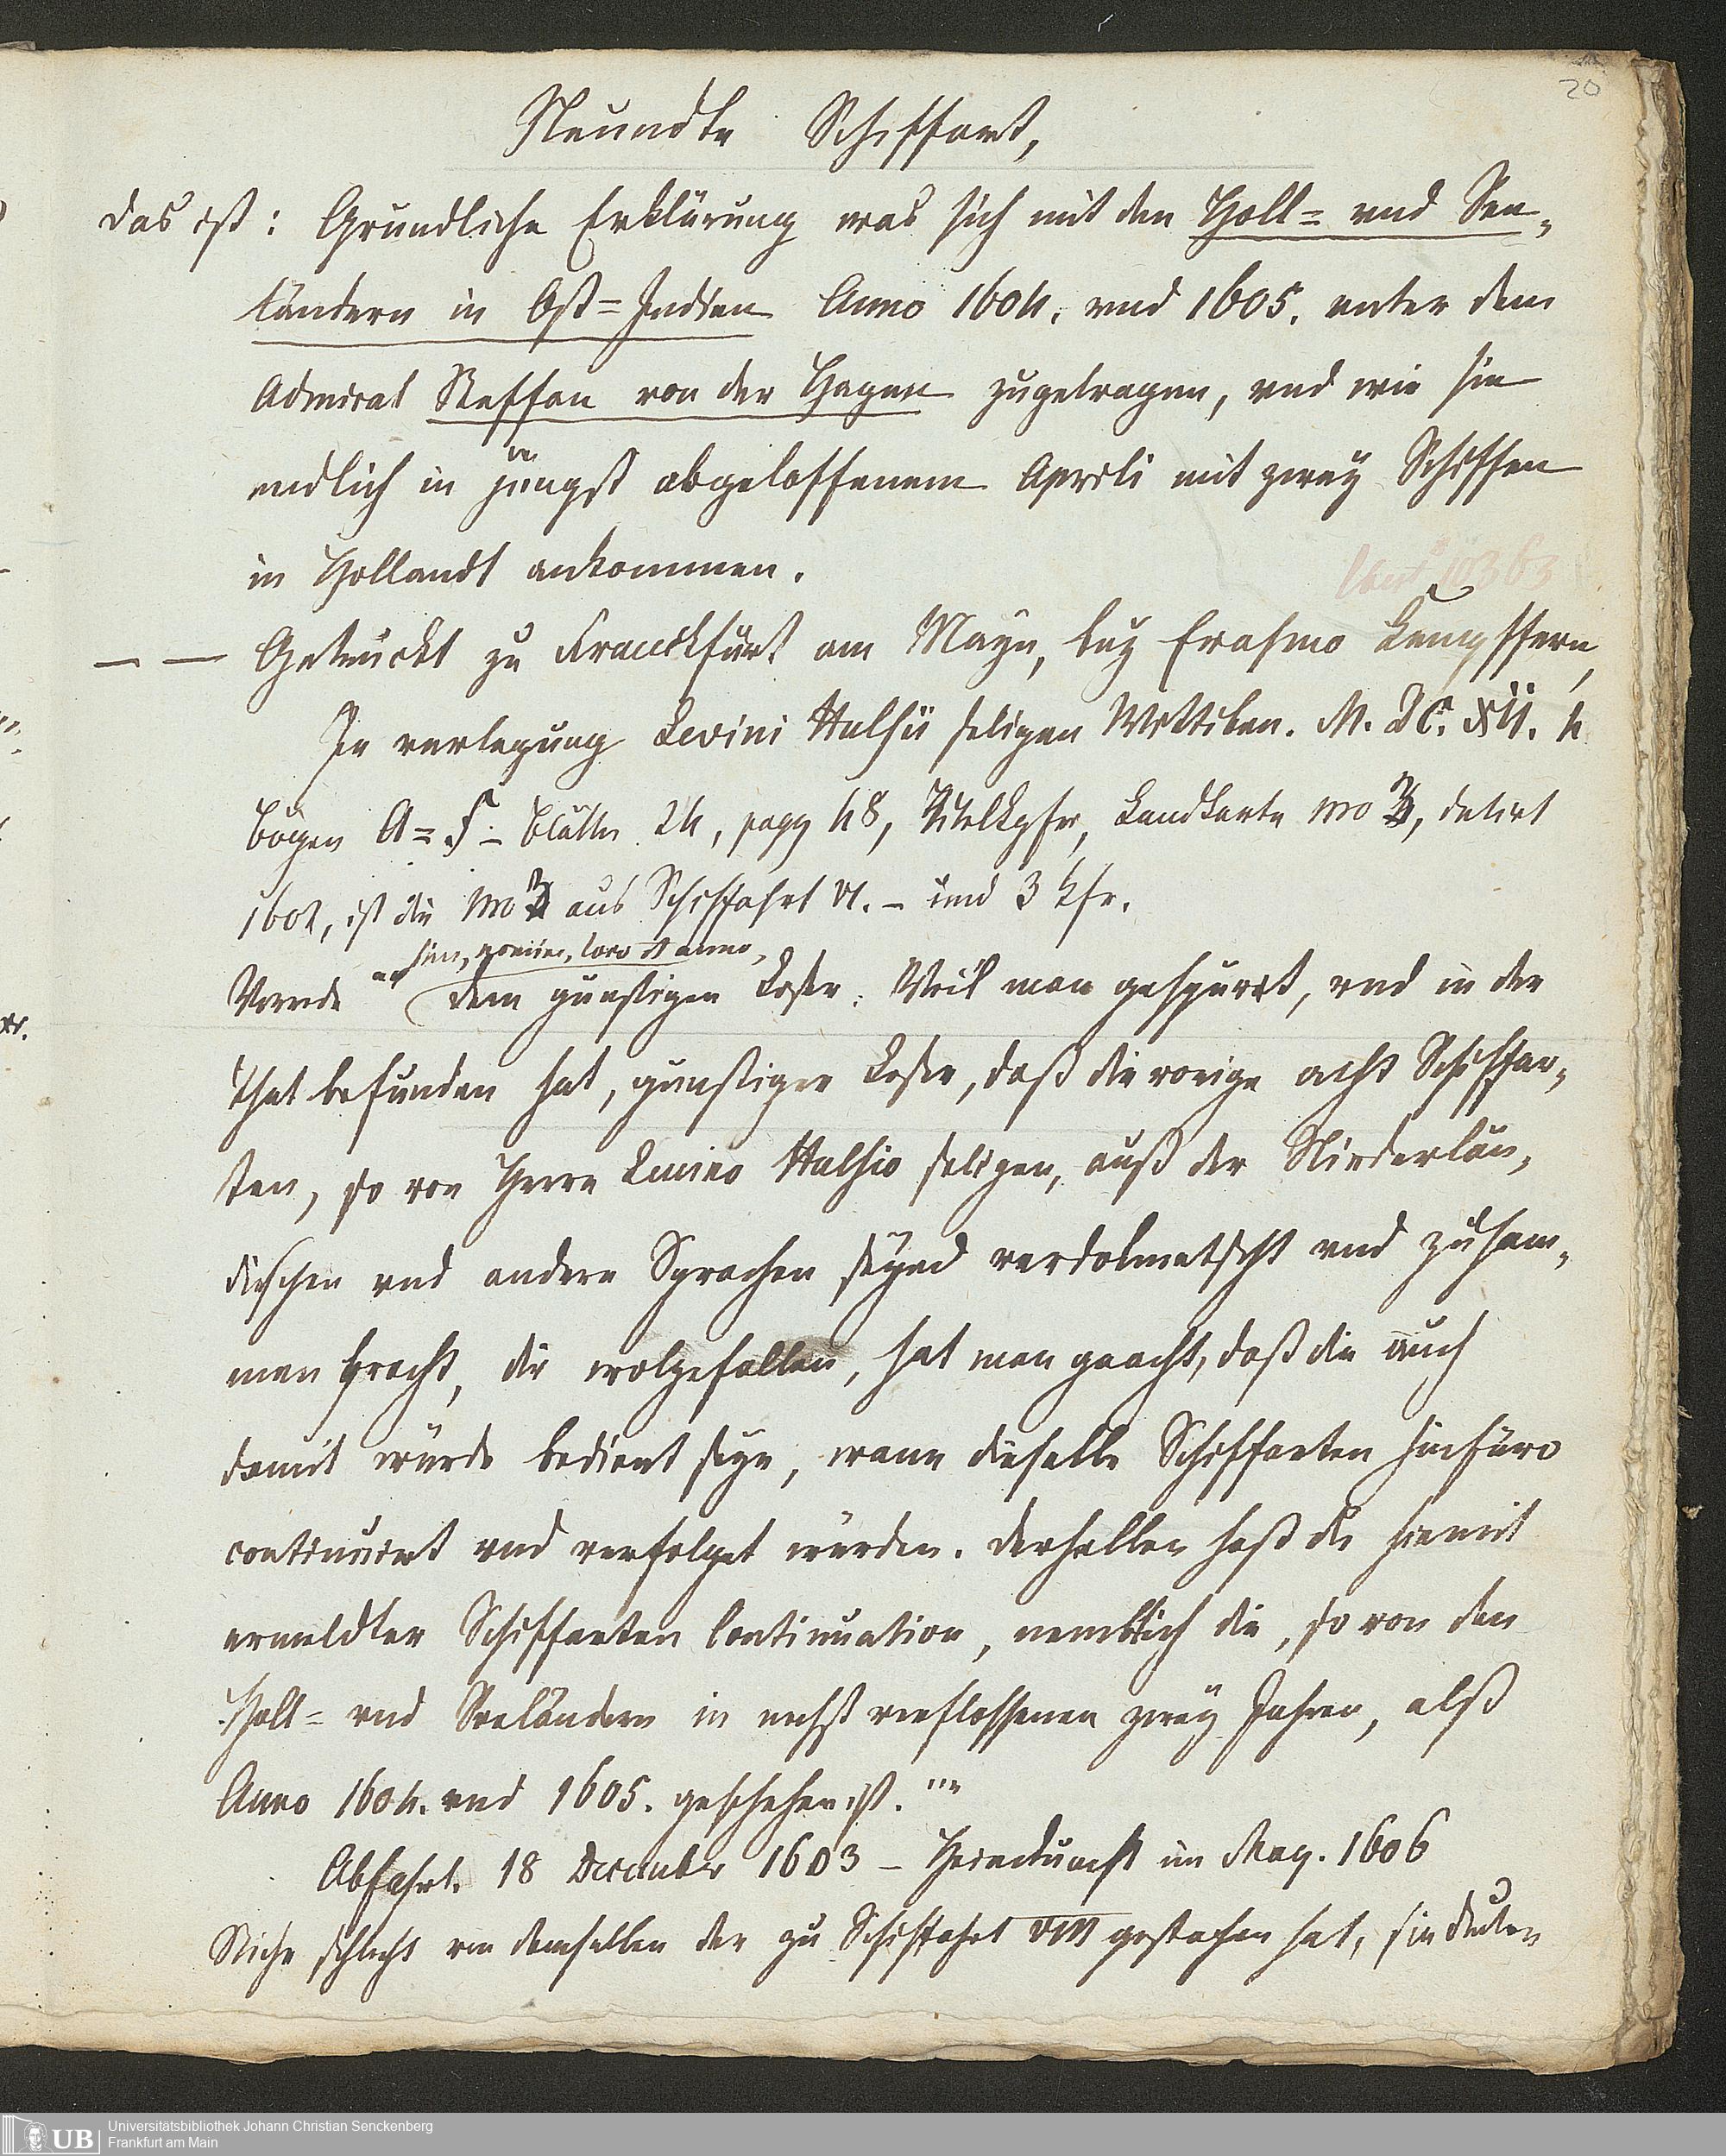 20
Neundte Schiffart,
das ist: Grundliche Erklärung was sich mit den Holl= vnd See¬
ländern in Ost=Indien Anno 1604. vnd 1605. vnter dem
Admiral Steffan von der Hagen zugetragen, vnd wie sie
endlich in jüngst abgeloffenem Aprili mit zwey Schiffen
in Hollandt ankommen.
— — Getruckt zu Franckfurt am Mayn, bey Erasmo Kempffern,
In verlegung Levini Hulsii seligen Wittiben. M.DC.XII. 4
bögen A=F – blätter 24, pagg 48, Titelkpfr, Landkarte datirt
1602, ist die aus Schiffahrt VI. – und 3 kfr.
Vorrede an dem gunstigen Leser: Weil man gespüret, vnd in der
That befunden hat, gunstiger Leser, daß die vorige acht Schiffar¬
ten, so von Herrn Levino Hulsio seligen, auß der Niederlän¬
dischen vnd andern Sprachen seynd verdolmetscht vnd zusam¬
men bracht, dir wolgefallen, hat man geacht, daß dir auch
damit würde bedient seyn, wann dieselbe Schiffarten hinfüro
continuirt vnd verfolget würden. Derhalben hast du hiemit
ermeldter Schiffarten Continuation, nemblich die, so von den
Holl= vnd Seeländern in nechst verflossenen zwey Jahren, alß
Anno 1604. vnd 1605. geschehen ist."
Abfahrt. 18 December 1603 – Heimkunft im May. 1606
Stiche schlecht von demselben der zu Schiffahrt VIII gestochen hat, sie
UB Universitätsbibliothek Johann Christian Senckenberg
Frankfurt am Main